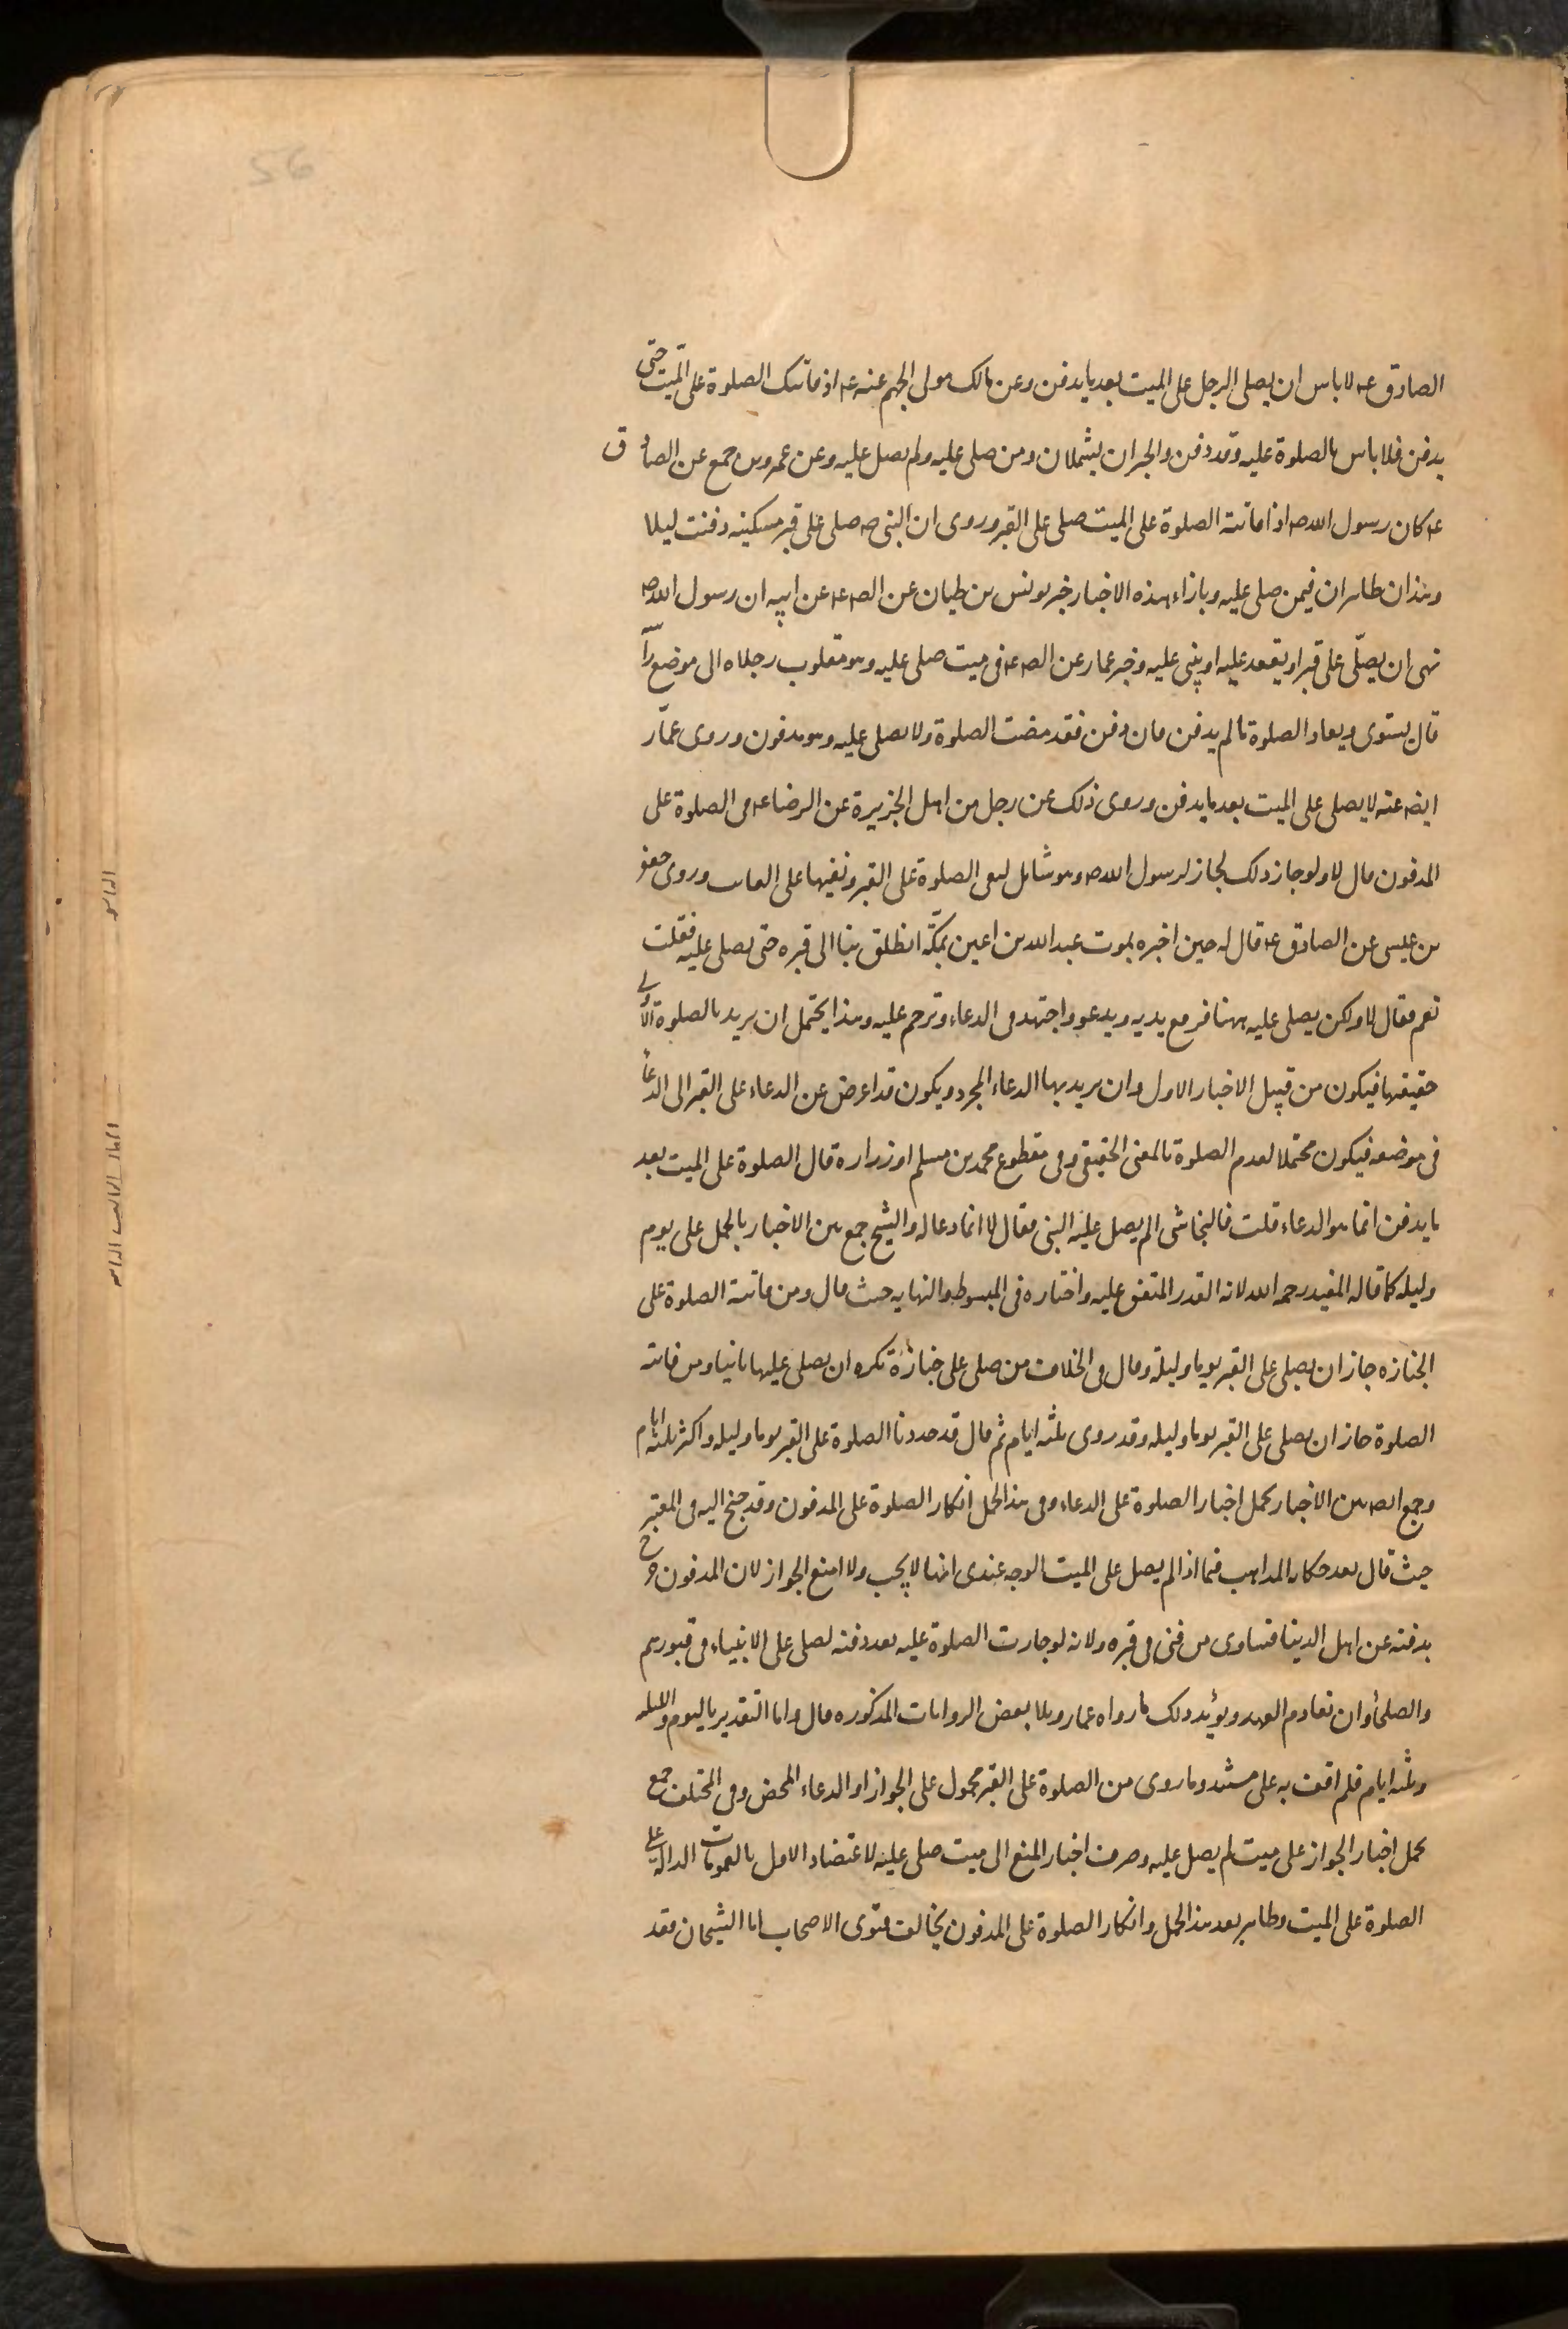 56
الصادق ع لا باس ان يصلى الرجل على الميت بعد ما يدفن وعن مالك مولى الجهم عنه ع اذ فاتتك الصلوة على الميت حتى
يدفن فلا باس بالصلوة عليه وقد دفن والخبران يشملان ومن صلى عليه ولم يصل عليه وعن عمرو بن جميع عن الصادق
ع كان رسول الله ص اذا فاتته الصلوة على الميت صلى على القبر وروى ان النبى ص صلى على قبر مسكينه دفنت ليلا
وهذان ظاهران فيمن صلى عليه وبازاء هذه الاخبار خبر يونس بن ظبيان عن الص ع عن ابيه ان رسول الله ص
نهى ان يصلّى على قبر او يقعد عليه او يبنى عليه وخبر عمار عن الص ع فى ميت صلى عليه وهو مقلوب رجلاه الى موضع راسه
قال يستوى ويعاد الصلوة ما لم يدفن فان دفن فقد مضت الصلوة ولا يصلى عليه وهو مدفون وروى عمّار
ايض عنه لا يصلى على الميت بعد ما يدفن وروى ذلك عن رجل من اهل الجزيرة عن الرضا ع فى الصلوة على
المدفون قال لا ولو جاز ذلك لجاز لرسول الله ص وهو شامل لنفى الصلوة على القبر ونفيها على الغائب وروى جعفر
بن عيسى عن الصادق ع قال له حين اخبره بموت عبد الله بن اعين بمكّة انطلق بنا الى قبره حتى نصلى عليه فقلت
نعم فقال لا ولكن يصلى عليه ههنا فرفع يديه ويدعو واجتهد فى الدعاء وترحم عليه وهذا يحتمل ان يريد بالصلوة الاولى
حقيقتها فيكون من قبيل الاخبار الاول وان يريد بها الدعاء المجرد ويكون قد اعرض عن الدعاء على القبر الى الدعاء
فى موضعه فيكون محتملا لعدم الصلوة بالمعنى الحقيقى وفى مقطوع محمد بن مسلم او زراره قال الصلوة على الميت بعد
ما يدفن انما هو الدعاء قلت فالنجاشى الم يصل عليه النبى فقال لا انما دعا له والشيخ جمع بين الاخبار بالحمل على يوم
وليله كما قاله المفيد رحمه الله لانه القدر المتفق عليه واختاره فى المبسوط والنهايه حيث قال ومن فاتته الصلوة على
الجنازه جاز ان يصلى على القبر يوما وليلة وقال فى الخلاف من صلى على جنازة نكره ان يصلى عليها ثانيا ومن فاتته
الصلوة جاز ان يصلى على القبر يوما وليله وقد روى ثلثه ايام ثم قال قد حددنا الصلوة على القبر يوما وليله واكثر ثلثه ايام
وجمع ايض بين الاخبار بحمل اخبار الصلوة على الدعاء وفى هذا الحمل انكار الصلوة على المدفون وقد جنح اليه فى المعتبر
حيث قال بعد حكايه المذاهب فيما اذا لم يصل على الميت الوجه عندى انها لا يجب ولا امنع الجواز لان المدفون خرج
بدفنه عن اهل الدنيا فساوى من فنى فى قبره ولانه لو جازت الصلوة عليه بعد دفنه لصلى على الانبياء فى قبورهم
والصلحاء وان تقادم العهد ويؤيد ذلك ما رواه عمار وتلا بعض الروايات المذكوره قال واما التقدير باليوم والليله
وثلثه ايام فلم اقف به على مستند وما روى من الصلوة على القبر محمول على الجواز او الدعاء المحض وفى المختلف جمع
بحمل اخبار الجواز على ميت لم يصل عليه وصرف اخبار المنع الى ميت صلى عليه لاعتضاد الاول بالعمومات الداله على
الصلوة على الميت وظاهر بعد هذا الحمل وانكار الصلوة على المدفون يخالف فتوى الاصحاب اما الشيخان فقد